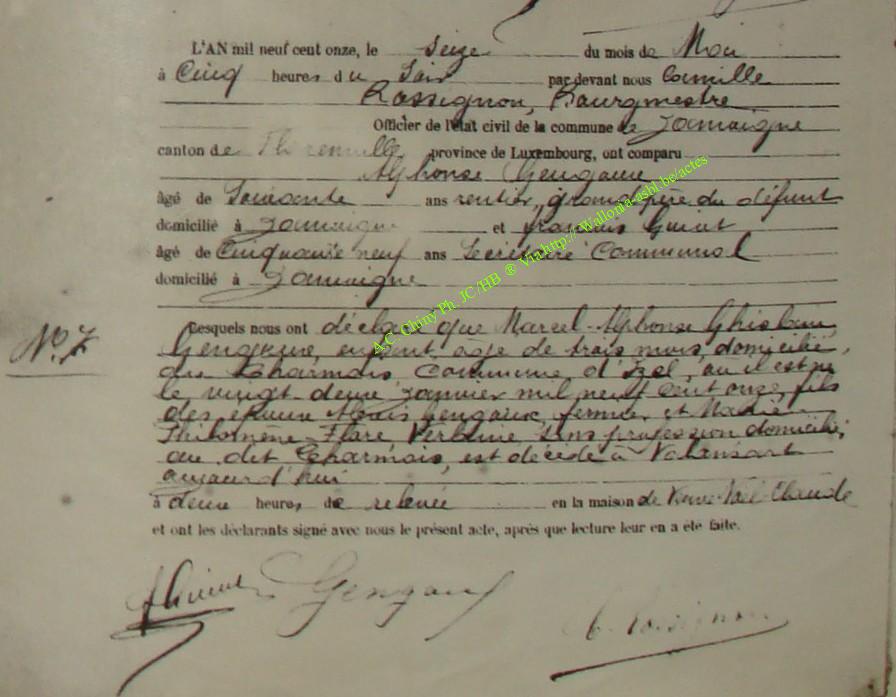 L'AN mil neuf cent onze, le Seize du mois de Mai
à Cinq heures du Soir par devant nous Camille
Rossignon, Bourgmestre
Officier de l'état civil de la commune de Jamoigne
canton de Florenville province de Luxembourg, ont comparu
Alphonse Gengoux
âgé de Soixante ans rentier, grand père du défunt
domicilié à Jamoigne et François Guiot
âgé de Cinquante neuf ans Secrétaire Communal
domicilié à Jamoigne
Lesquels nous ont déclaré que Marcel Alphonse Ghislain
N° 7
Gengoux, enfant, âgé de trois mois, domicilié
au Charmois, Commune d'Izel, où il est né
le vingt deux Janvier mil neuf cent onze, fils
des époux Gengoux, fermier et Marie
Philomène Flore sans profession domiciliés
au dit Charmois, est décédé à Valansart
aujourd'hui
à deux heures de relevée en la maison de Noël Claude
et ont les déclarants signé avec nous le présent acte, après que lecture leur en a été faite.
Gengoux
C. Rossignon
A.C. Chiny Ph. JC/HB ® Via http://Wallonia-asbl.be/actes